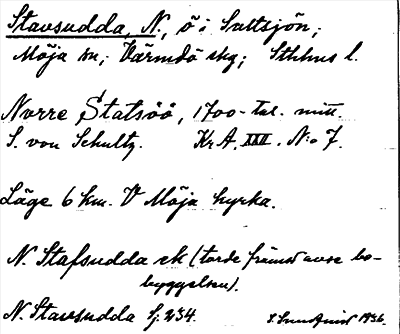 Stavsudda, N., ö i Saltsjön;
Möja sn; Värmdö skg; Sthlms l.
Norre Statsöö, 1700-tal. mitt.
S. von Schultz. Kr A. XXII. N:o 7.
Läge 6 km. V Möja kyrka.
N. Stafsudda ek (torde främst avse bo-
byggelsen).
N. Stavsudda Sj. 234.
1936.